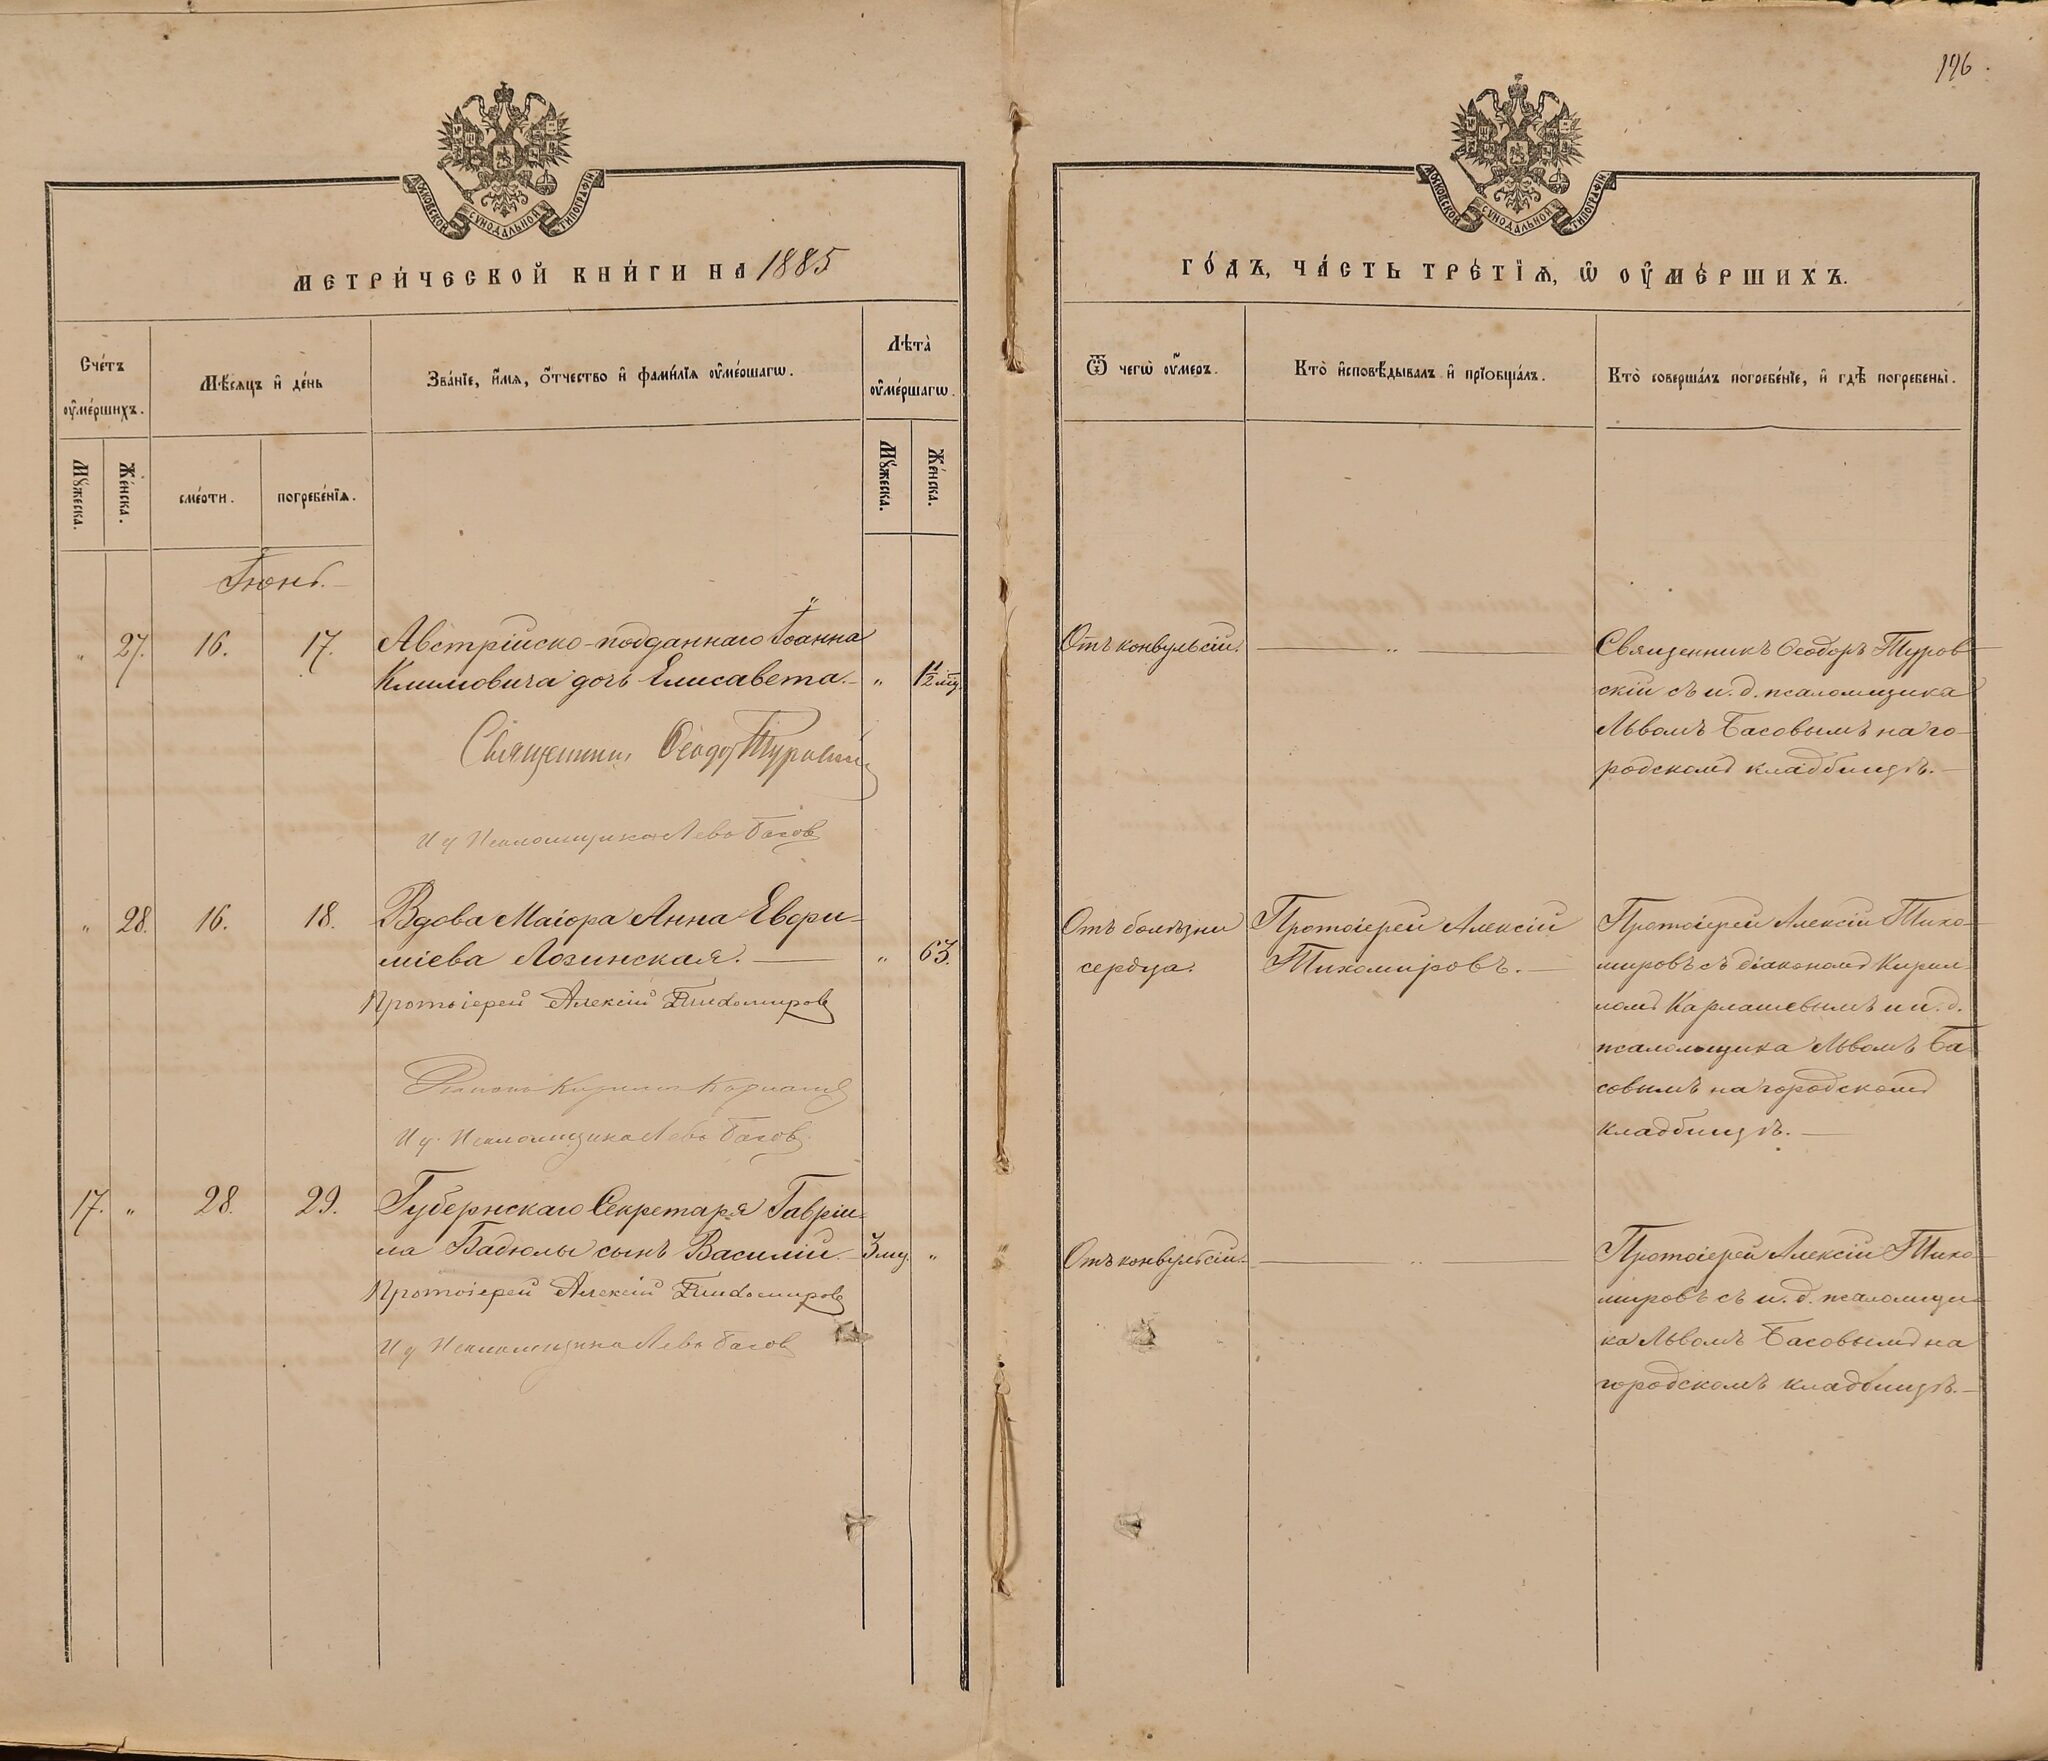 196.
МОСКОВСКОЙ СѴНОДАЛЬНОЙ ТИПОГРАФІИ
МОСКОВСКОЙ СѴНОДАЛЬНОЙ ТИПОГРАФІИ
МЕТРИ́ЧЕСКОЙ КНИ́ГИ НА 1885
ГО́ДЪ, ЧА́СТЬ ТРЕ́ТІѦ, Ѡ҆ ОУ҆МЕ́РШИХЪ.
Сче́тъ оу҆ме́ршихъ.
Мѣ́сѧцъ и҆ де́нь
Зва́нїе, и҆́мѧ, о҆́тчество и҆ фами́лїѧ оу҆ме́ршагѡ.
Лѣта̀ оу҆ме́ршагѡ.
Ѿ чегѡ̀ оу҆́меръ.
Кто̀ и҆сповѣ́дывалъ и҆ прїобща́лъ.
Кто̀ соверша́лъ погребе́нїе, и҆ гдѣ̀ погребены̀.
Мꙋ́жеска.
Же́нска.
сме́рти.
погребе́нїѧ.
Мꙋ́жеска.
Же́нска.
Іюнь.
" 27. 16. 17. Австрійско-подданнаго Іоанна
Климовича дочь Елисавета. " 1/2 мц.
Священникъ Ѳеодоръ Туровскій
И д Псаломщика Левъ Басовъ
Отъ конвульсій. — " —
Священникъ Ѳеодоръ Туров-
скій съ и. д. псаломщика
Львомъ Басовымъ на го-
родскомъ кладбищѣ.
" 28. 16. 18. Вдова Маіора Анна Евѳи-
міева Лозинская. — " 63.
Протоіерей Алексій Тихомировъ
Діаконъ Кириллъ Карлашев
И д. Псаломщика Левъ Басовъ
Отъ болѣзни
сердца.
Протоіерей Алексій
Тихомировъ.
Протоіерей Алексій Тихо-
мировъ съ діакономъ Кирил-
ломъ Карлашевымъ и и. д.
псаломщика Львомъ Ба-
совымъ на городскомъ
кладбищѣ.
17. " 28. 29. Губернскаго Секретаря Гаврії-
ла Бадюлы сынъ Василій. 3 мц. "
Протоіерей Алексій Тихомировъ
И д Псаломщика Левъ Басов
Отъ конвульсій. — " —
Протоіерей Алексій Тихо-
мировъ съ и. д. псаломщи-
ка Львомъ Басовымъ на
городскомъ кладбищѣ.